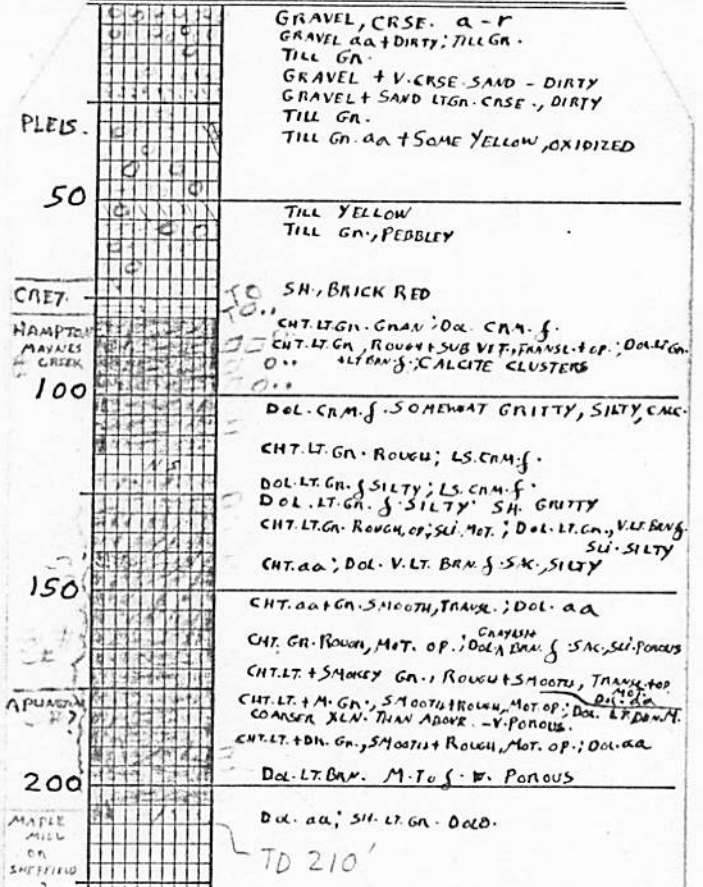 GRAVEL, CRSE. a-r
GRAVEL aa + DIRTY; TILL Gn.
TILL Gn.
GRAVEL + V.CRSE SAND - DIRTY
GRAVEL + SAND LTGn. CRSE., DIRTY
TILL Gn.
PLEIS.
TILL Gn. aa + SOME YELLOW, OXIDIZED
50
TILL YELLOW
TILL Gn., PEBBLEY
CRET.
TO SH., BRICK RED
TO..
HAMPTON
MAYNES
CREEK
CHT. LT. Gn. GRAN; DOL. CRM. f.
CHT. LT. Gn, ROUGH + SUB VIT., TRANSL. + OP.; DOL. LT. Gn.
+ LT BRN f.; CALCITE CLUSTERS
100
DOL. CRM. f. SOMEWHAT GRITTY, SILTY, CALC.
CHT. LT. Gn. ROUGH; LS. CRM. f.
N S
DOL. LT. Gn. f SILTY; LS. CRM. f.
DOL. LT. Gn. f. SILTY SH. GRITTY
CHT. LT. Gn. ROUGH, OP; SLI. MOT.; DOL. LT. Gn., V.LT. BRN f.
SLI. SILTY
CHT. aa; DOL. V.LT. BRN. f. SAC., SILTY
150
CHT. aa + Gn. SMOOTH, TRANSL.; DOL. aa
CHT. GR. ROUGH, MOT. OP.; DOL. GRAYISH BRN. f SAC, SLI. POROUS
CHT. LT. + SMOKEY Gn., ROUGH + SMOOTH, TRANSL + OP.
MOT.
DOL. aa
CHT. LT. + M. Gn., SMOOTH + ROUGH, MOT. OP.; DOL. LT. BRN. M.
COARSER XLN. THAN ABOVE. - V. POROUS.
CHT. LT. + DK. Gn., SMOOTH + ROUGH, MOT. OP.; DOL. aa
200
DOL. LT. BRN. M. TO f. POROUS
MAPLE
MILL
OR
SHEFFIELD
?
DOL. aa; SH. LT. Gn. DOLO.
TD 210'